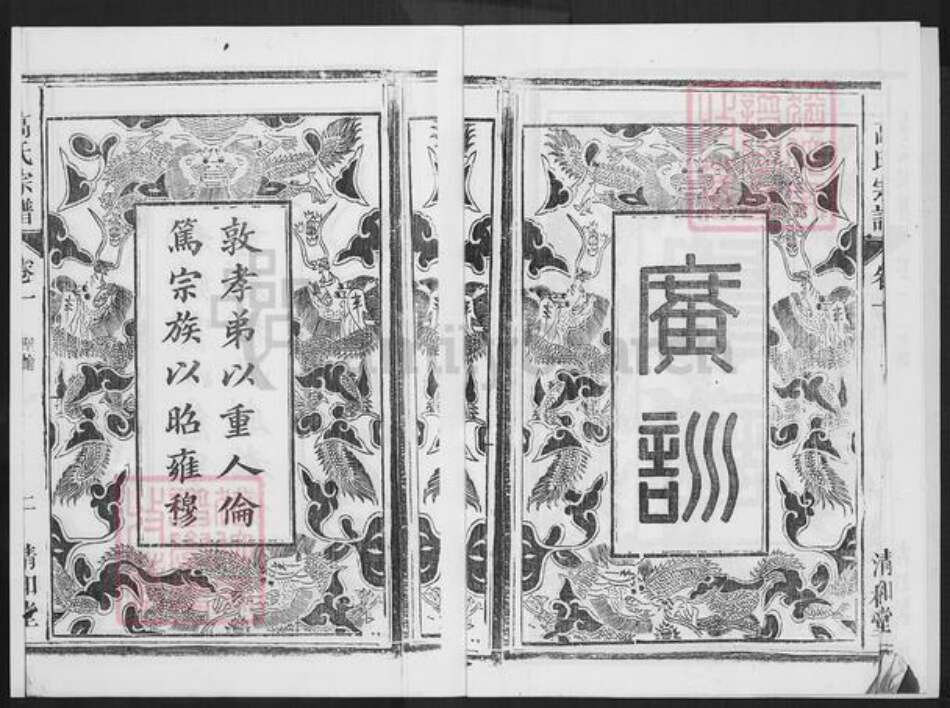 高氏宗譜
卷一
清和堂
廣訓
敦孝弟以重人倫
篤宗族以昭雍穆
高氏宗譜
卷一
二
清和堂